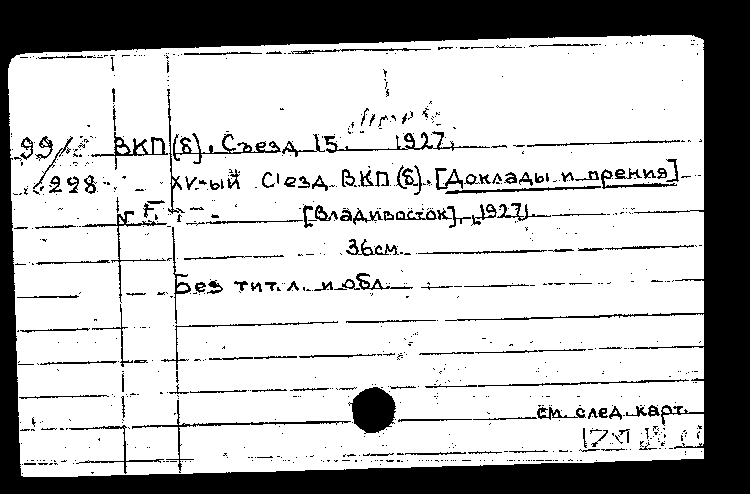 99/
228
ВКП(б). Съезд 15. 1927.
XV-ый С'езд ВКП(б). [Доклады и прения]
[Владивосток], 1927].
36см.
Без тит. л. и обл.
см. след. карт.